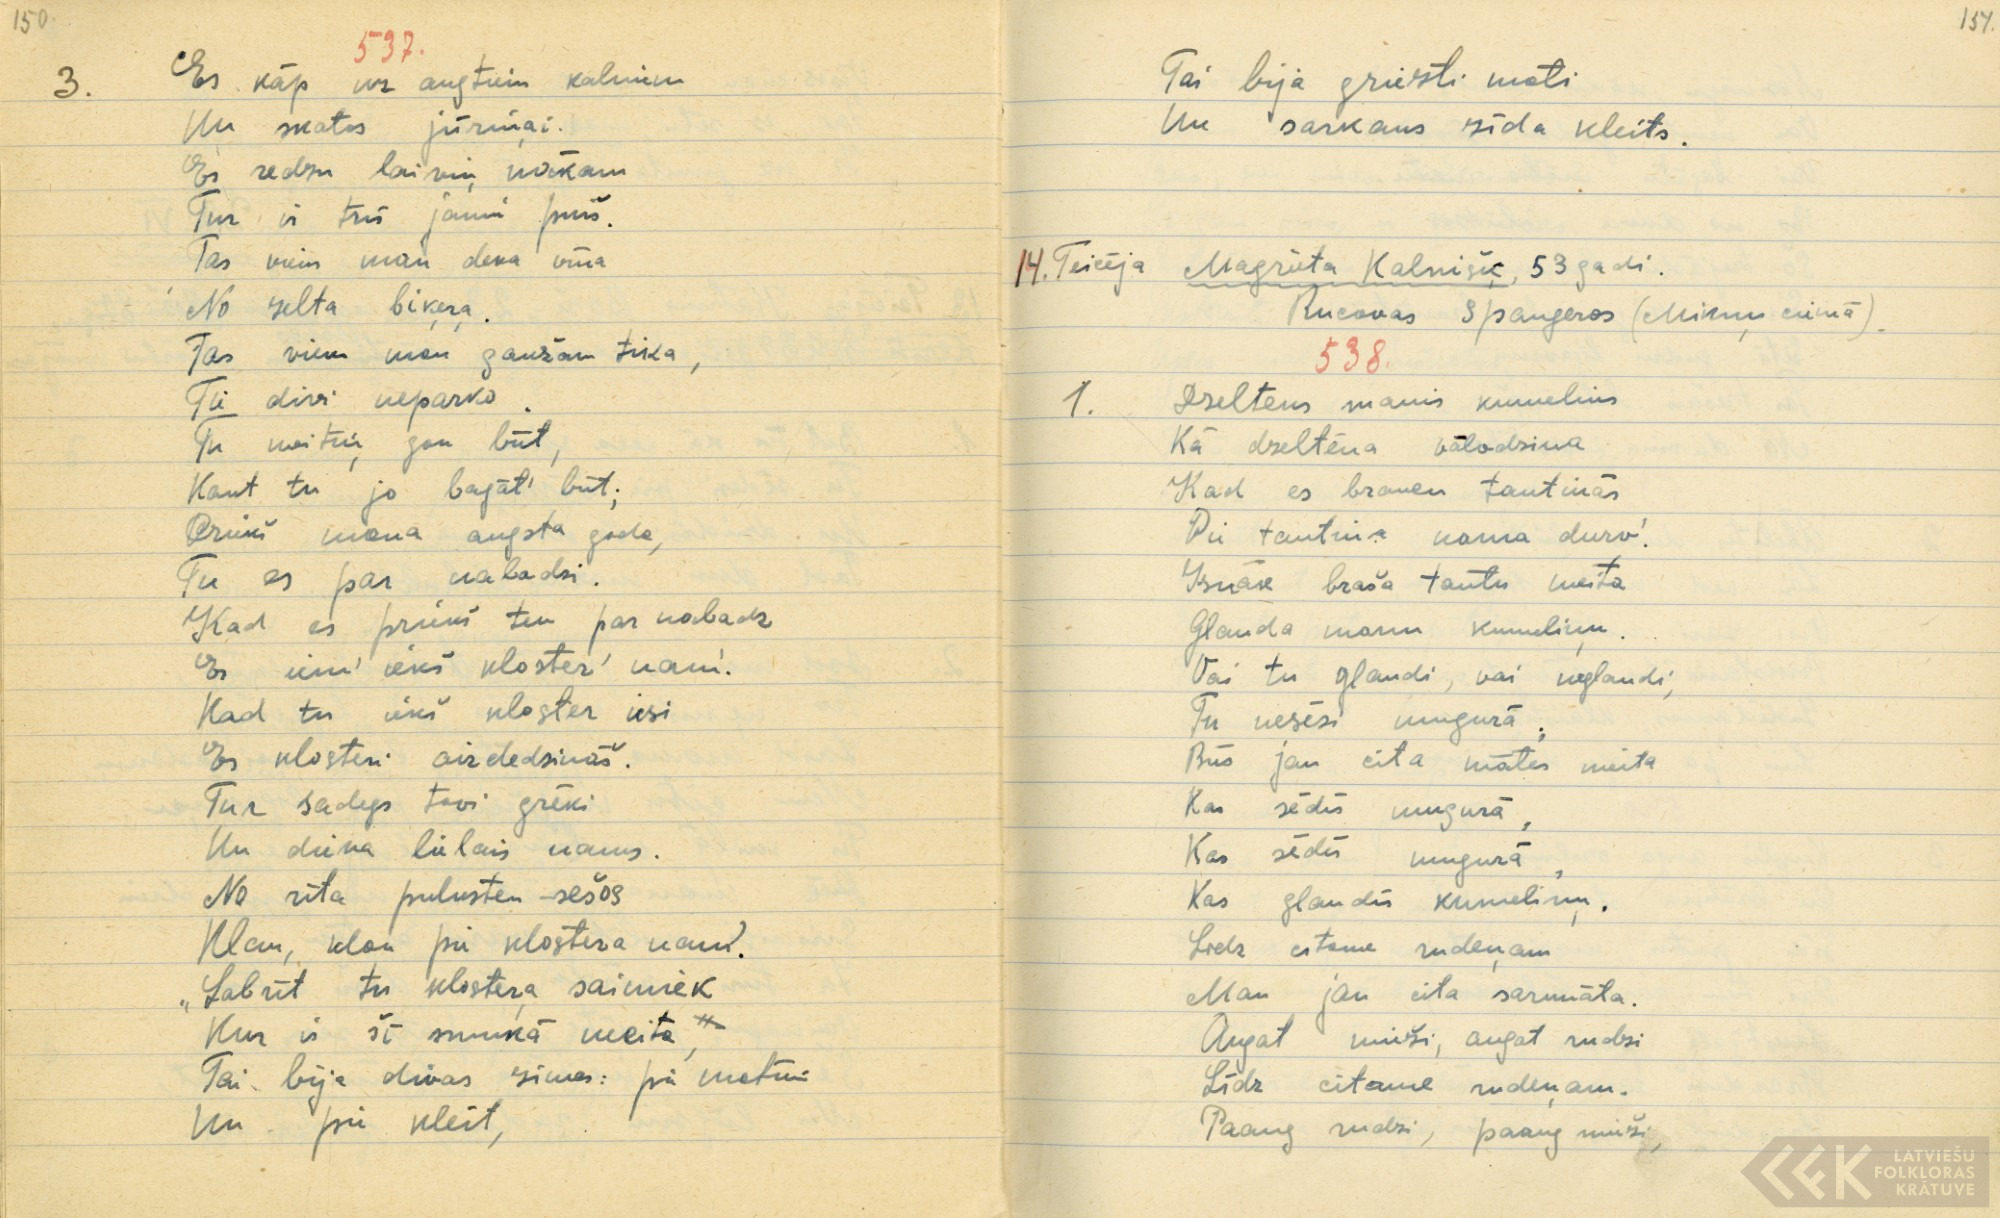 150.
537.
3. Es kāp uz augtiem kalniem
Un skatos jūriņai.
Es redzu laiviņ nākam
Tur ir trīs jauni puiš.
Tas viens man deva vīna
No zelta biķeŗa.
Tas viens man gaužam tika,
Tie divi neparko.
Tu meitiņ gan būt,
Kaut tu jo bagāt' būt;
Priekš mana augsta goda,
Tu es par nabadzi.
Kad es priekš tev par nabadz
Es iem' iekš kloster' nam'.
Kad tu iekš kloster iesi
Es klosteri aizdedzināš.
Tur sadegs tavi grēki
Un dieva lielais nams.
No rīta pulksten sešos
Klau, klau pie klostera nam'.
„Labrīt tu klosteŗa saimniek
Kur ir šī smukā meita,"
Tai bija divas zīmes: pie matiem
Un pie kleit,
151.
Tai bija griezti mati
Un sarkans zīda kleits.
14. Teicēja Magrieta Kalnišķ, 53 gadi.
Rucavas Spaugeros (Mikuņ ciemā).
538.
1. Dzeltens manis kumeliņs
Kā dzeltēna vālodziņa
Kad es braucu tautiņās
Pie tautiņa nama durv'.
Iznāk braša tautu meita
Glauda manu kumeliņu.
Vai tu glaudi, vai neglaudi,
Tu nesēsi mugurā;
Būs jau cita mātes meita
Kas sēdīs mugurā,
Kas sēdīs mugurā,
Kas glaudīs kumeliņu.
Lidz citame rudeņam
Man jau cita sarunāta.
Augat mieži, augat rudzi
Līdz citame rudeņam.
Paaug rudzi, paaug mieži,
LATVIEŠU
FOLKLORAS
KRĀTUVE